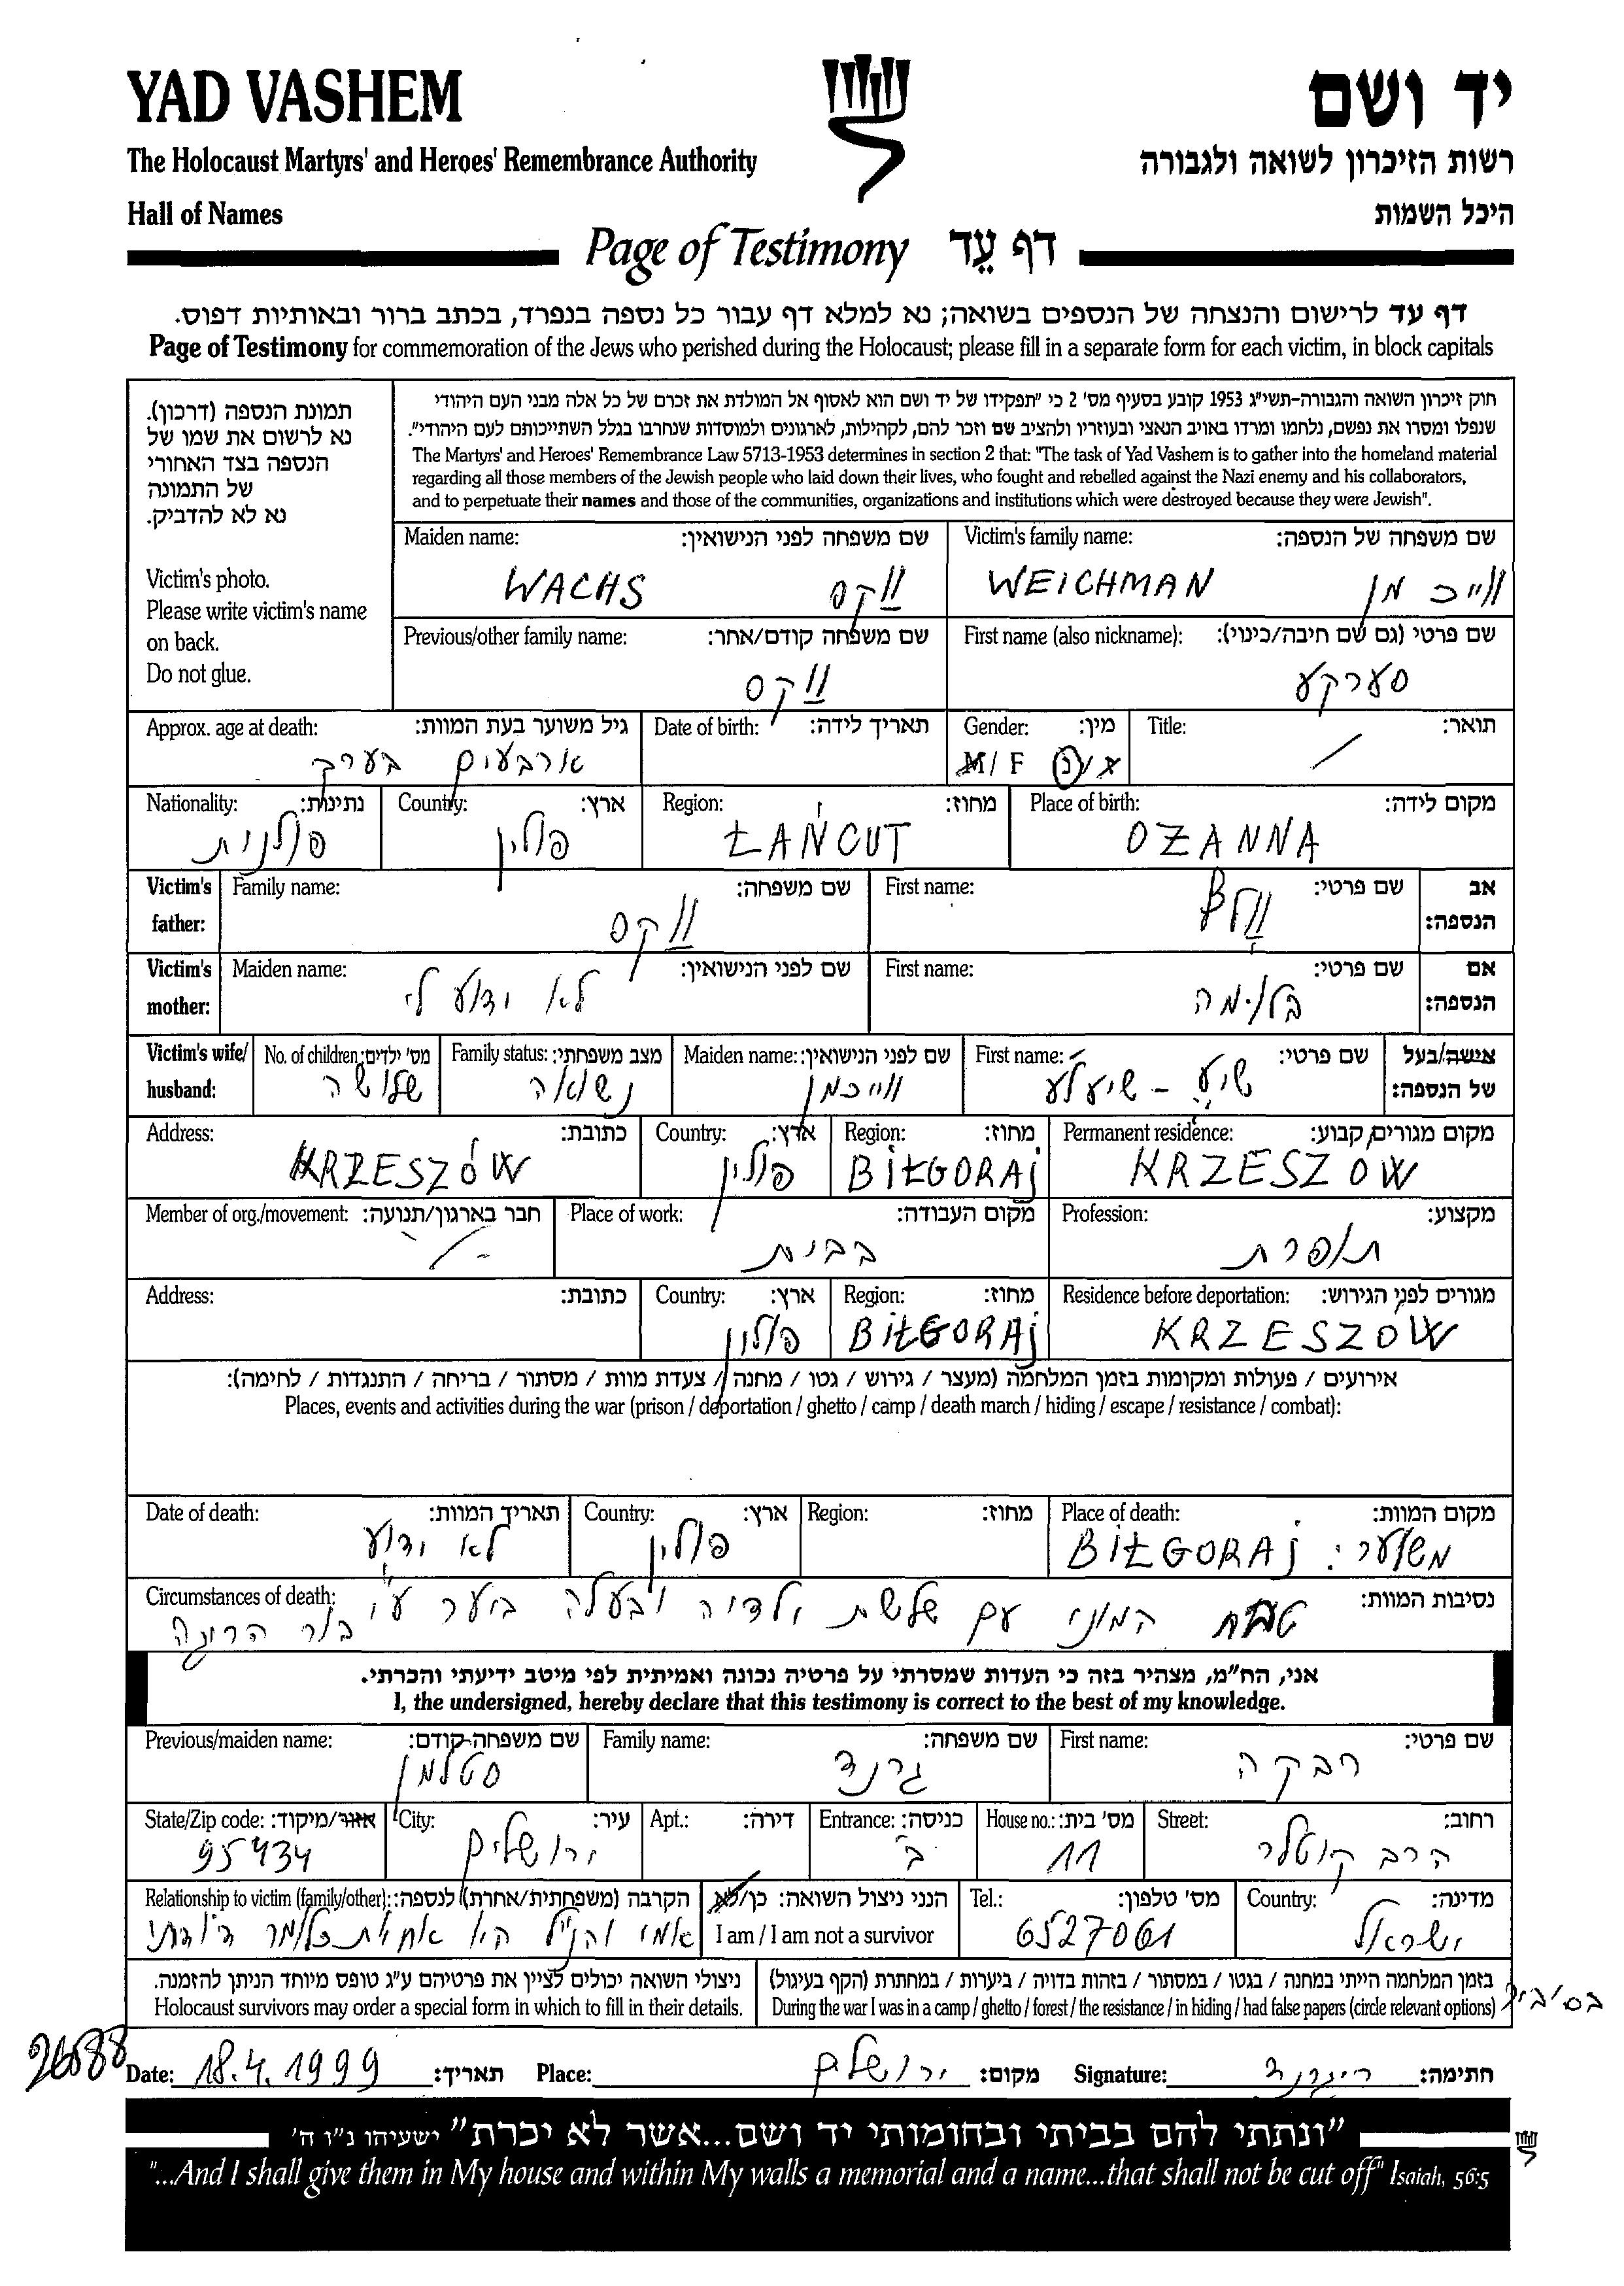 YAD VASHEM
יד ושם
The Holocaust Martyrs' and Heroes' Remembrance Authority
רשות הזיכרון לשואה ולגבורה
Hall of Names
היכל השמות
Page of Testimony דף עֵד
דף עד לרישום והנצחה של הנספים בשואה; נא למלא דף עבור כל נספה בנפרד, בכתב ברור ובאותיות דפוס.
Page of Testimony for commemoration of the Jews who perished during the Holocaust; please fill in a separate form for each victim, in block capitals
תמונת הנספה (דרכון).
נא לרשום את שמו של
הנספה בצד האחורי
של התמונה
נא לא להדביק.
Victim's photo.
Please write victim's name
on back.
Do not glue.
חוק זיכרון השואה והגבורה-תשי"ג 1953 קובע בסעיף מס' 2 כי "תפקידו של יד ושם הוא לאסוף אל המולדת את זכרם של כל אלה מבני העם היהודי
שנפלו ומסרו את נפשם, נלחמו ומרדו באויב הנאצי ובעוזריו ולהציב שם וזכר להם, לקהילות, לארגונים ולמוסדות שנחרבו בגלל השתייכותם לעם היהודי".
The Martyrs' and Heroes' Remembrance Law 5713-1953 determines in section 2 that: "The task of Yad Vashem is to gather into the homeland material
regarding all those members of the Jewish people who laid down their lives, who fought and rebelled against the Nazi enemy and his collaborators,
and to perpetuate their names and those of the communities, organizations and institutions which were destroyed because they were Jewish".
Maiden name: שם משפחה לפני הנישואין:
WACHS ווקס
Victim's family name: שם משפחה של הנספה:
WEICHMAN ווייכמן
Previous/other family name: שם משפחה קודם/אחר:
ווקס
First name (also nickname): שם פרטי (גם שם חיבה/כינוי):
סערקע
Approx. age at death: גיל משוער בעת המוות:
ארבעים בערך
Date of birth: תאריך לידה:
Gender: מין:
M/ F ז/נ
Title: תואר:
/
Nationality: נתינות:
פולנית
Country: ארץ:
פולין
Region: מחוז:
ŁAŃCUT
Place of birth: מקום לידה:
OZANNA
Victim's father: Family name: שם משפחה:
ווקס
First name: שם פרטי: אב הנספה:
Victim's mother: Maiden name: שם לפני הנישואין:
לא ידוע לי
First name: שם פרטי: אם הנספה:
בלימה
Victim's wife/ husband: No. of children: מס' ילדים:
שלושה
Family status: מצב משפחתי:
נשואה
Maiden name: שם לפני הנישואין:
ווייכמן
First name: שם פרטי: אישה/בעל של הנספה:
שיע - שיעלע
Address: כתובת:
KRZESZÓW
Country: ארץ:
פולין
Region: מחוז:
BIŁGORAj
Permanent residence: מקום מגורים קבוע:
KRZESZOW
Member of org./movement: חבר בארגון/תנועה:
Place of work: מקום העבודה:
בבית
Profession: מקצוע:
תופרת
Address: כתובת:
Country: ארץ:
פולין
Region: מחוז:
BIŁGORAj
Residence before deportation: מגורים לפני הגירוש:
KRZESZOW
אירועים / פעולות ומקומות בזמן המלחמה (מעצר / גירוש / גטו / מחנה / צעדת מוות / מסתור / בריחה / התנגדות / לחימה):
Places, events and activities during the war (prison / deportation / ghetto / camp / death march / hiding / escape / resistance / combat):
Date of death: תאריך המוות:
לא ידוע
Country: ארץ:
פולין
Region: מחוז:
Place of death: מקום המוות:
משוער: BIŁGORAj
Circumstances of death: נסיבות המוות:
טבח המוני עם שלשת ילדיה ובעלה ביער ע"י בור הריגה
אני, הח"מ, מצהיר בזה כי העדות שמסרתי על פרטיה נכונה ואמיתית לפי מיטב ידיעתי והכרתי.
I, the undersigned, hereby declare that this testimony is correct to the best of my knowledge.
Previous/maiden name: שם משפחה קודם:
סטלמן
Family name: שם משפחה:
גרנד
First name: שם פרטי:
רבקה
State/Zip code: אזור/מיקוד:
95434
City: עיר:
ירושלים
Apt.: דירה:
Entrance: כניסה:
ב'
House no.: מס' בית:
11
Street: רחוב:
הרב קוטלר
Relationship to victim (family/other): הקרבה (משפחתית/אחרת) לנספה:
אמי והנ"ל היו אחיות כלומר דודתי
הנני ניצול השואה: כן/לא
I am / I am not a survivor
Tel.: מס' טלפון:
6527061
Country: מדינה:
ישראל
ניצולי השואה יכולים לציין את פרטיהם ע"ג טופס מיוחד הניתן להזמנה.
Holocaust survivors may order a special form in which to fill in their details.
בזמן המלחמה הייתי במחנה / בגטו / במסתור / בזהות בדויה / ביערות / במחתרת (הקף בעיגול)
During the war I was in a camp / ghetto / forest / the resistance / in hiding / had false papers (circle relevant options)
בסיביר
26088
Date: 18.4.1999 תאריך: Place: ירושלים מקום: Signature: ר. גרנד חתימה:
"ונתתי להם בביתי ובחומותי יד ושם...אשר לא יכרת" ישעיהו נ"ו ה'
"...And I shall give them in My house and within My walls a memorial and a name...that shall not be cut off" Isaiah, 56:5